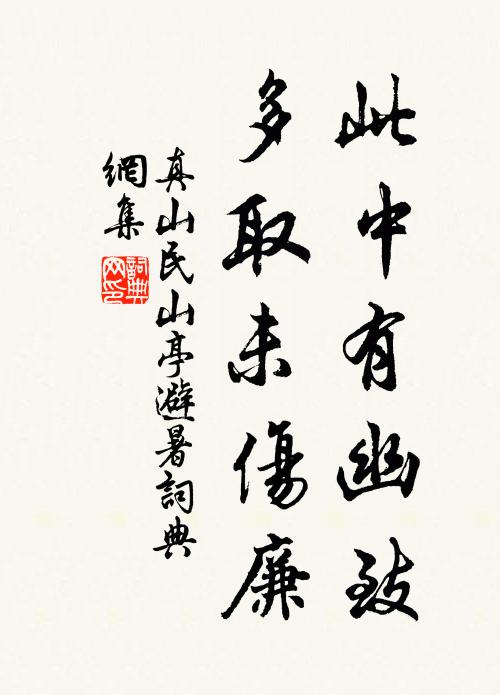 此中有幽致
多取未傷廉
真山民山亭避暑詞典
網集
詞典
网印